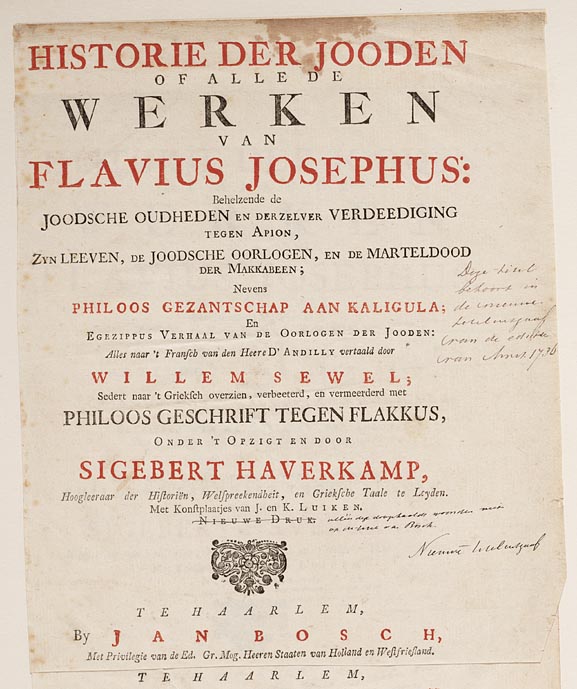 HISTORIE DER JOODEN
OF ALLE DE
WERKEN
VAN
FLAVIUS JOSEPHUS:
Behelzende de
JOODSCHE OUDHEDEN EN DERZELVER VERDEEDIGING
TEGEN APION,
ZYN LEEVEN, DE JOODSCHE OORLOGEN, EN DE MARTELDOOD
DER MAKKABEEN;
Nevens
PHILOOS GEZANTSCHAP AAN KALIGULA;
En
EGEZIPPUS VERHAAL VAN DE OORLOGEN DER JOODEN:
Alles naar 't Fransch van den Heere D'ANDILLY vertaald door
WILLEM SEWEL;
Sedert naar 't Grieksch overzien, verbeeterd, en vermeerderd met
PHILOOS GESCHRIFT TEGEN FLAKKUS,
ONDER 'T OPZIGT EN DOOR
SIGEBERT HAVERKAMP,
Hoogleeraar der Historiën, Welspreekendheit, en Grieksche Taale te Leyden.
Met Konstplaatjes van J. en K. LUIKEN.
NIEUWE DRUK.
TE HAARLEM,
By JAN BOSCH,
Met Privilegie van de Ed. Gr. Mog. Heeren Staaten van Holland en Westfriesland.
TE HAARLEM,
Deze titel
behoort in
de nieuwe
van de
van 1736
Nieuwe